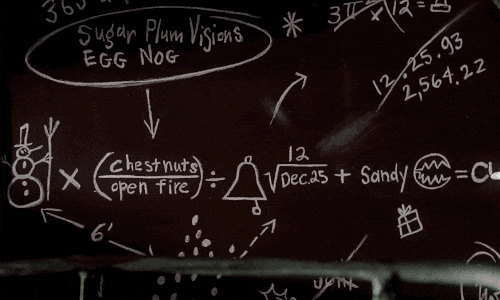 Sugar Plum Visions
EGG NOG
3π x √12 =
12.25.93
2,564.22
x (chestnuts/open fire) ÷ 12/√Dec.25 + Sandy = CL
6'